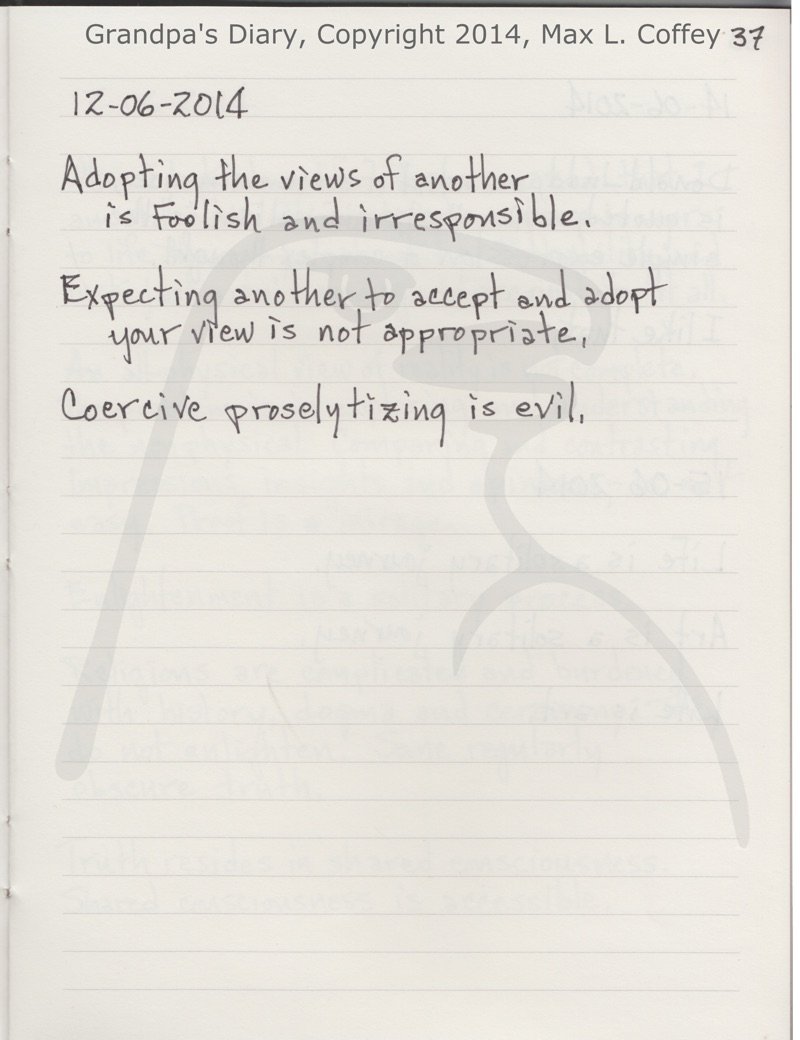 Grandpa's Diary, Copyright 2014, Max L. Coffey 37
12-06-2014
Adopting the views of another
is foolish and irresponsible.
Expecting another to accept and adopt
your view is not appropriate.
Coercive proselytizing is evil.